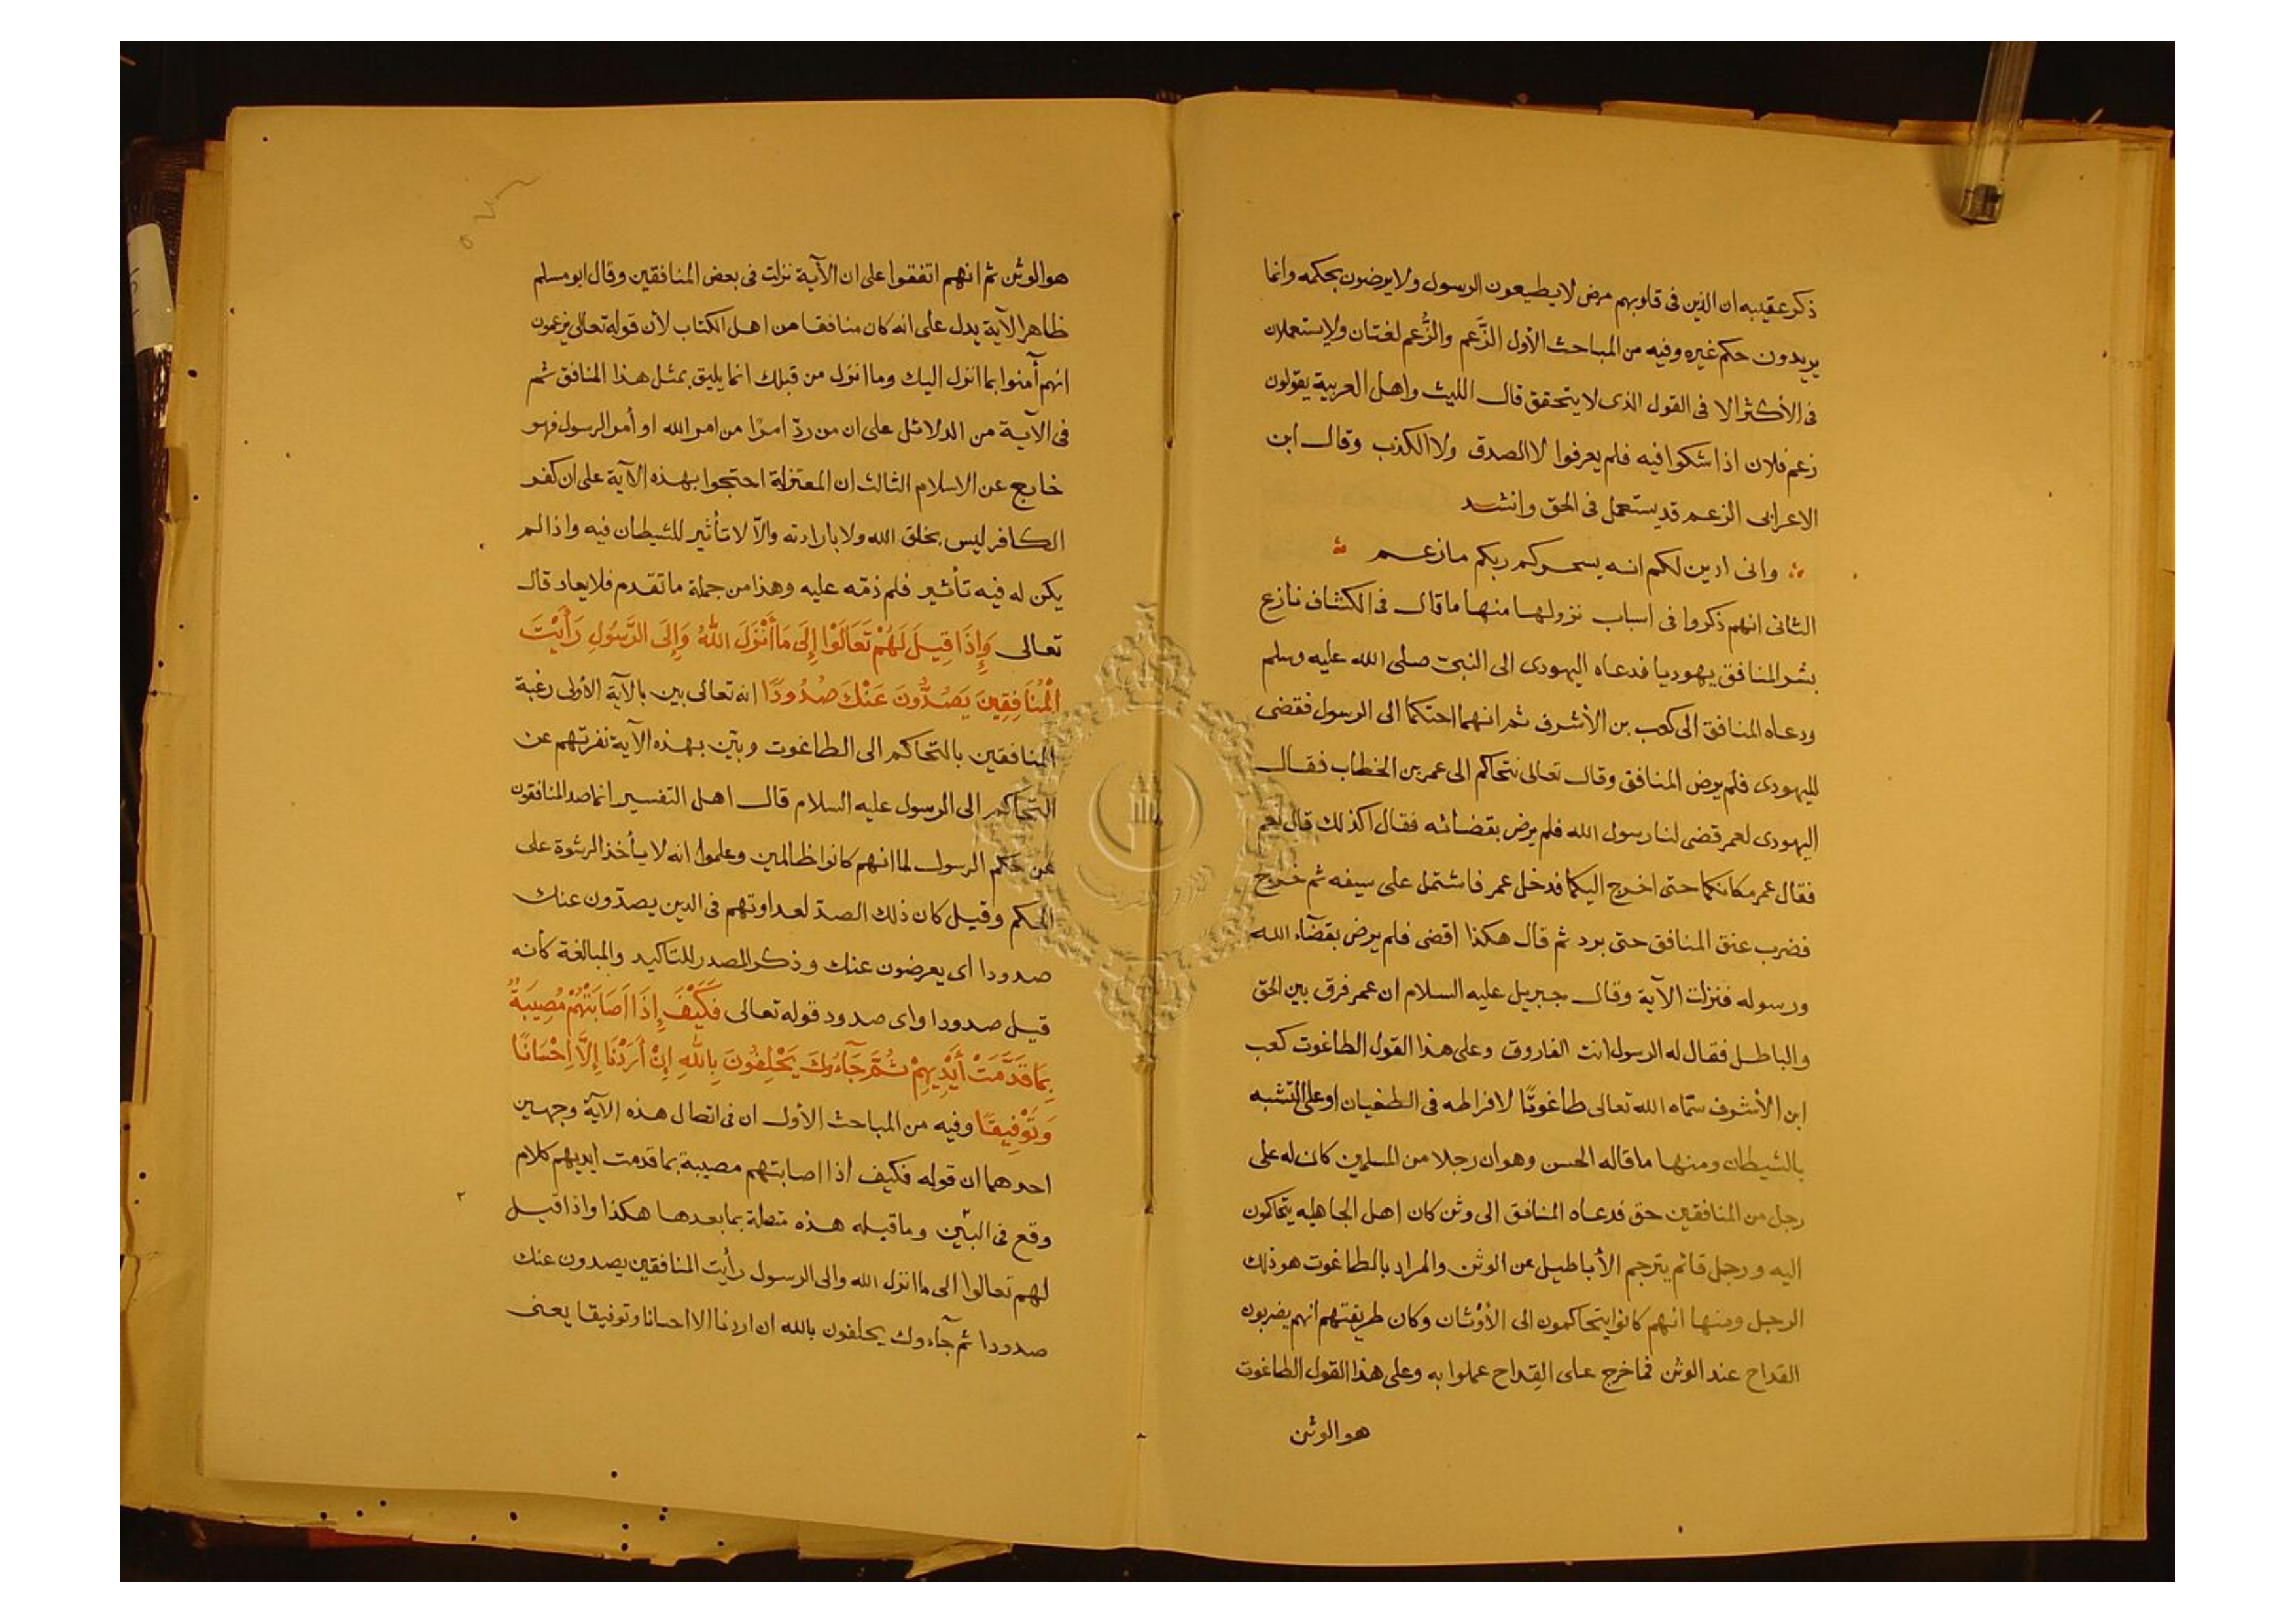 ذكر عقيبه ان الذين فى قلوبهم مرض لا يطيعون الرسول ولا يرضون بحكمه وانما
يريدون حكم غيره وفيه من المباحث الأول الزَّعم والزُّعم لغتان ولا يستعملان
فى الأكثر الا فى القول الذى لا يتحقق قال الليث واهل العربية يقولون
زعم فلان اذا شكوا فيه فلم يعرفوا لا الصدق ولا الكذب وقال ابن
الاعرابى الزعم قد يستعمل فى الحق وانشد
وانى ادين لكم انه يسحركم ربكم ما زعم
الثانى انهم ذكروا فى اسباب نزولها منها ما قال فى الكشاف نازع
بشر المنافق يهوديا فدعاه اليهودى الى النبى صلى الله عليه وسلم
ودعاه المنافق الى كعب بن الأشرف ثم انهما احتكما الى الرسول فقضى
لليهودى فلم يرض المنافق وقال تعالى نتحاكم الى عمر بن الخطاب فقال
اليهودى لعمر قضى لنا رسول الله فلم يرض بقضائه فقال اكذلك قال نعم
فقال عمر مكانكما حتى اخرج اليكما فدخل عمر فاشتمل على سيفه ثم خرج
فضرب عنق المنافق حتى برد ثم قال هكذا اقضى فلم يرض بقضآء الله
ورسوله فنزلت الآية وقال جبريل عليه السلام ان عمر فرق بين الحق
والباطل فقال له الرسول انت الفاروق وعلى هذا القول الطاغوت كعب
ابن الأشرف سمّاه الله تعالى طاغوتًا لافراطه فى الطغيان او على التشبه
بالشيطان ومنها ما قاله الحسن وهو ان رجلا من المسلمين كان له على
رجل من المنافقين حق فدعاه المنافق الى وثن كان اهل الجاهليه يتحاكمون
اليه ورجل قائم يترجم الأباطيل عن الوثن والمراد بالطاغوت هو ذلك
الرجل ومنها انهم كانوا يتحاكمون الى الأوثان وكان طريقتهم انهم يضربون
القداح عند الوثن فما خرج على القداح عملوا به وعلى هذا القول الطاغوت
هو الوثن
هو الوثن ثم انهم اتفقوا على ان الآية نزلت فى بعض المنافقين وقال ابو مسلم
ظاهر الآية يدل على انه كان منافقا من اهل الكتاب لأن قوله تعالى يزعمون
انهم آمنوا بما انزل اليك وما انزل من قبلك انما يليق بمثل هذا المنافق ثم
فى الآية من الدلائل على ان من ردّ امرًا من امر الله او أمر الرسول فهو
خارج عن الاسلام الثالث ان المعتزلة احتجوا بهذه الآية على ان كفر
الكافر ليس بخلق الله ولا بارادته والاّ لا تأثير للشيطان فيه واذا لم
يكن له فيه تأثير فلم ذمّه عليه وهذا من جملة ما تقدم فلا يعاد قال
تعالى وَإِذَا قِيلَ لَهُمْ تَعَالَوْا إِلَى مَا أَنْزَلَ اللهُ وَإِلَى الرَّسُولِ رَأَيْتَ
الْمُنَافِقِينَ يَصُدُّونَ عَنْكَ صُدُودًا انه تعالى بين بالآية الأولى رغبة
المنافقين بالتحاكم الى الطاغوت وبيّن بهذه الآية نفرتهم عن
التحاكم الى الرسول عليه السلام قال اهل التفسير انما صد المنافقون
عن حكم الرسول لما انهم كانوا ظالمين وعلموا انه لا يأخذ الرشوة على
الحكم وقيل كان ذلك الصدّ لعداوتهم فى الدين يصدّون عنك
صدودا اى يعرضون عنك وذكر المصدر للتاكيد والمبالغة كأنه
قيل صدودا واى صدود قوله تعالى فَكَيْفَ إِذَا أَصَابَتْهُمْ مُصِيبَةٌ
بِمَا قَدَّمَتْ أَيْدِيهِمْ ثُمَّ جَآءُوكَ يَحْلِفُونَ بِاللهِ إِنْ أَرَدْنَا إِلَّا إِحْسَانًا
وَتَوْفِيقًا وفيه من المباحث الأول ان فى اتصال هذه الآية وجهين
احدهما ان قوله فكيف اذا اصابتهم مصيبة بما قدمت ايديهم كلام
وقع فى البَيْن وما قبله هذه متصلة بما بعدها هكذا واذا قيل
لهم تعالوا الى ما انزل الله والى الرسول رأيت المنافقين يصدون عنك
صدودا ثم جآءوك يحلفون بالله ان اردنا الا احسانا وتوفيقا يعنى